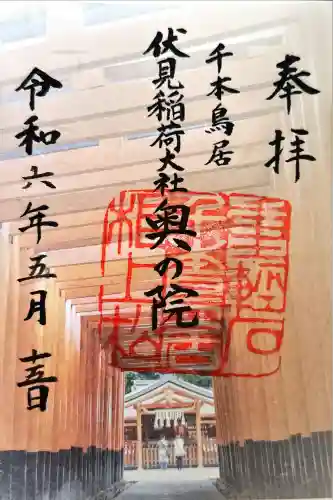 奉拝
千本鳥居
伏見稲荷大社
奥の院
令和六年五月